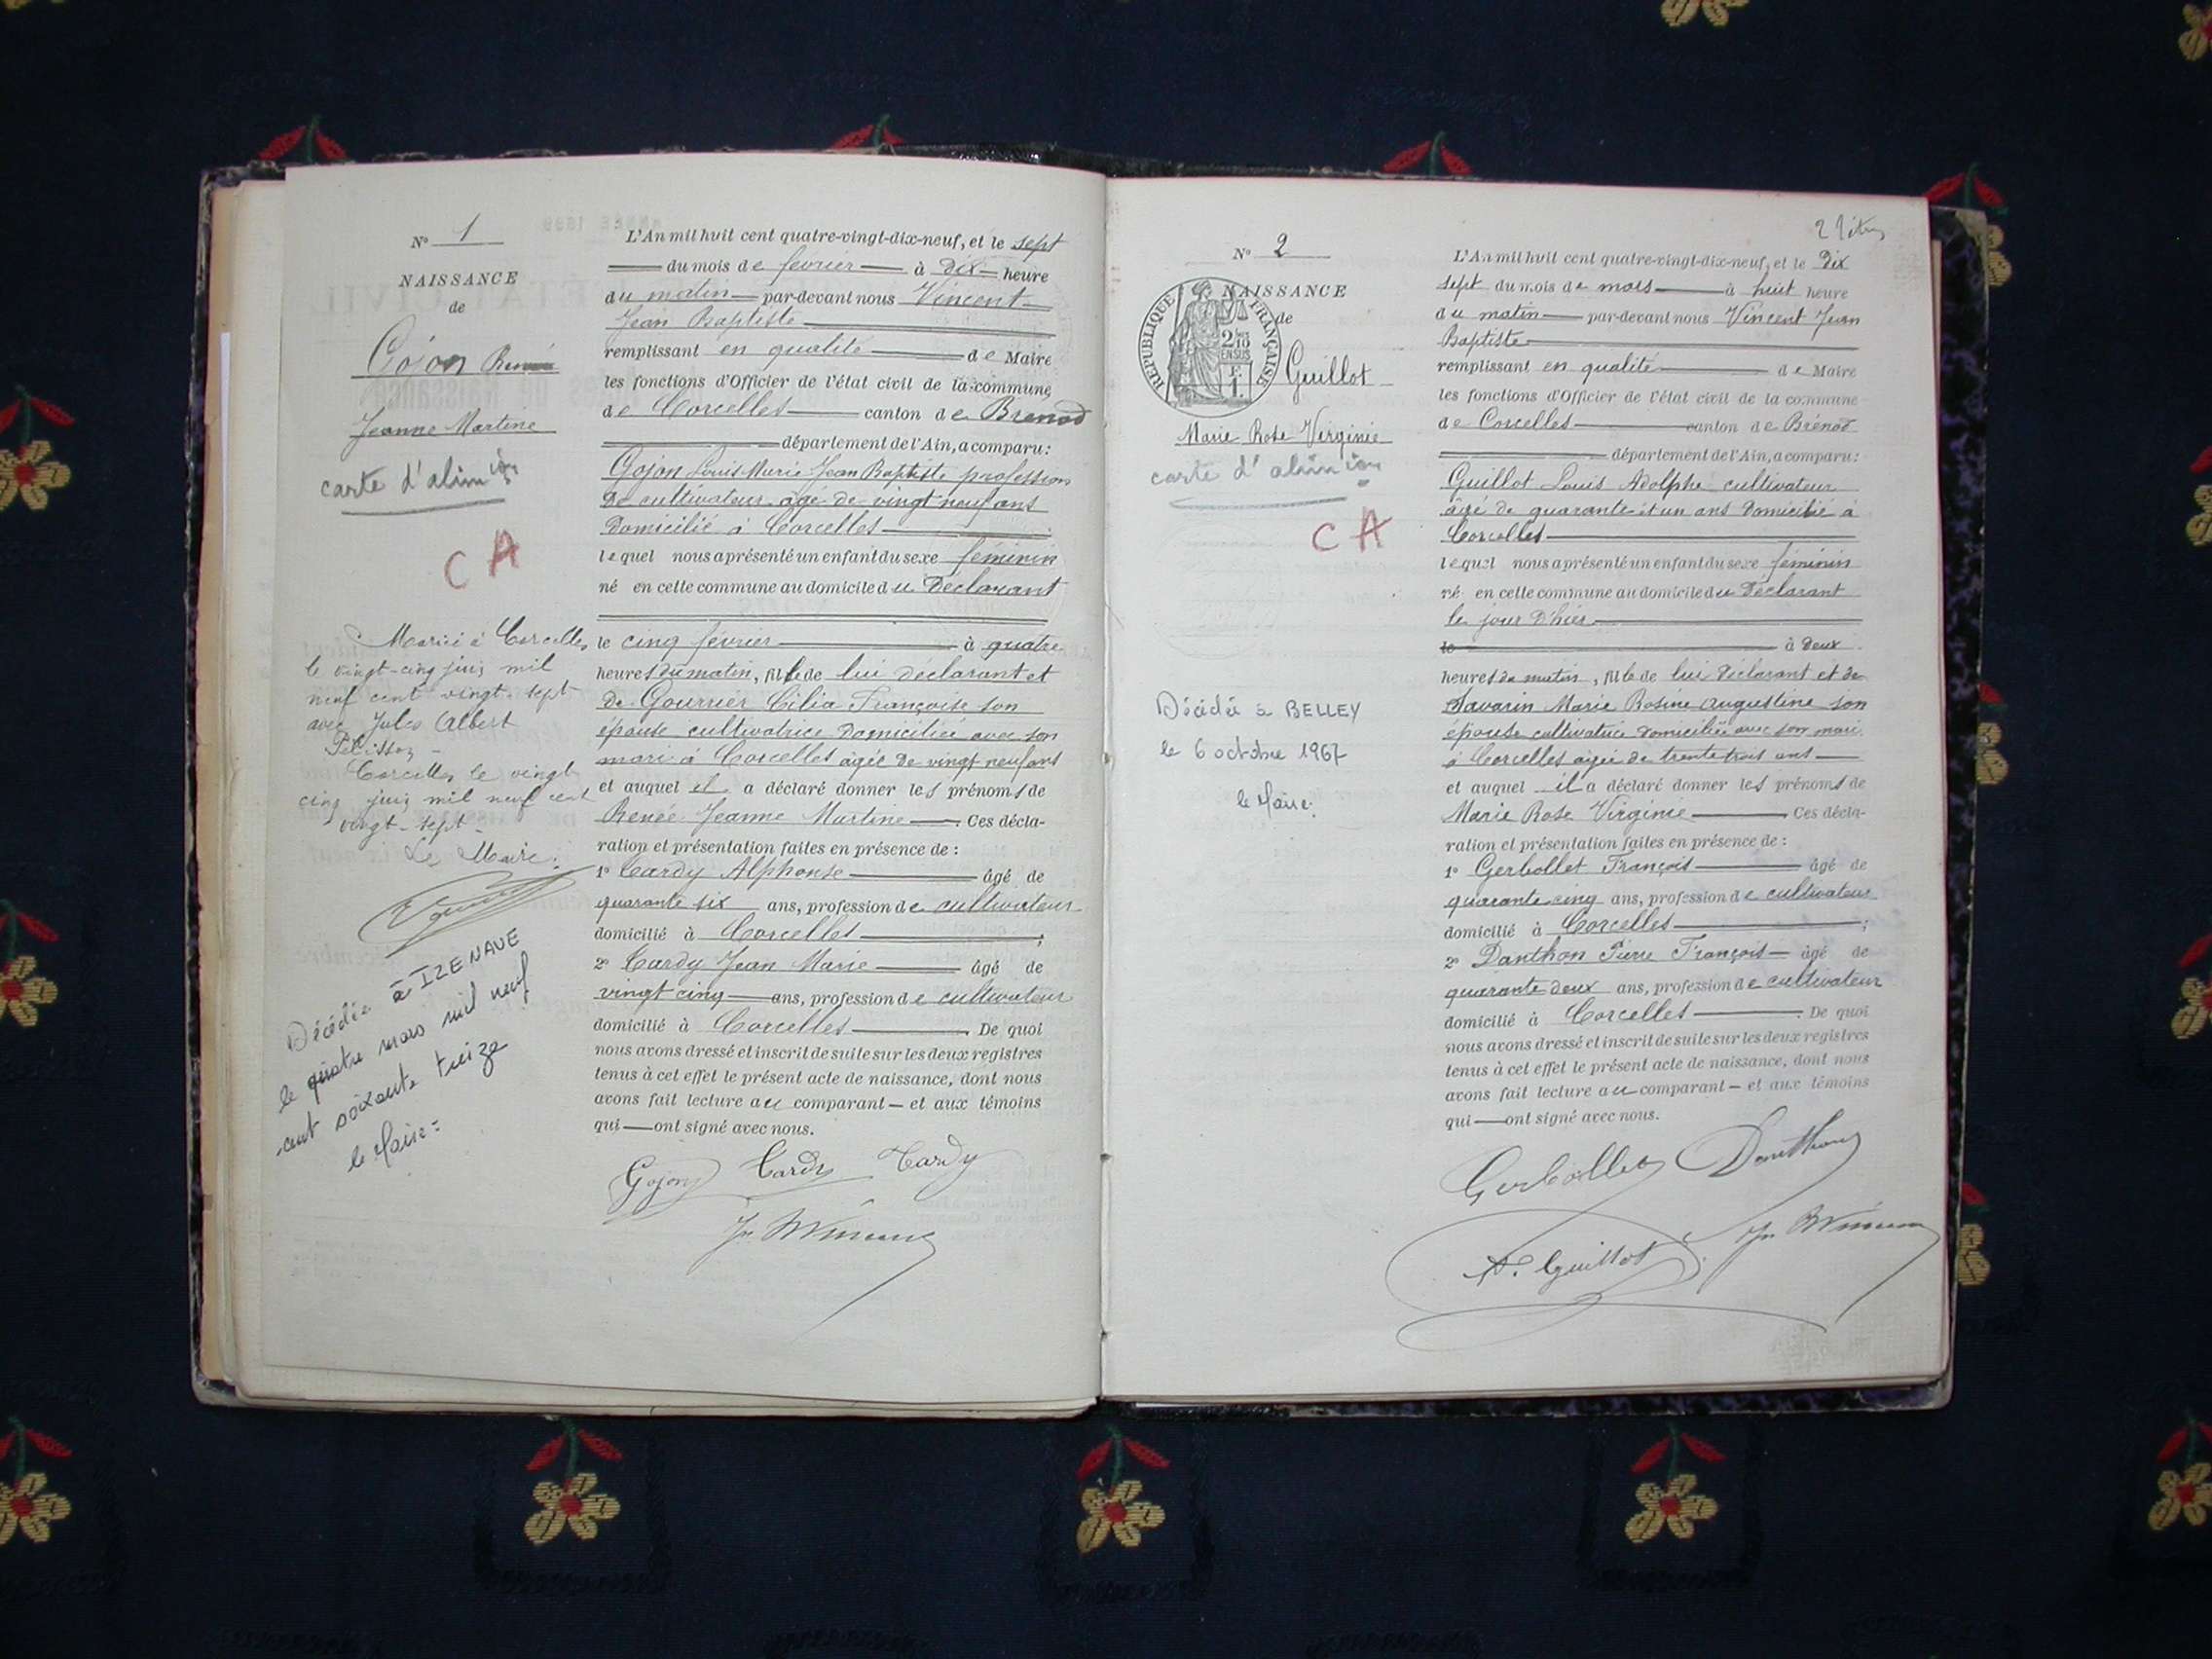 N° 1
NAISSANCE
de
Gojon Renée
Jeanne Martine
carte d'alim ion
C A
Marié à Corcelles
le vingt-cinq juin mil
neuf cent vingt-sept
avec Jules Albert
Pélisson -
Corcelles le vingt
cinq juin mil neuf cent
vingt-sept -
Le Maire:
Décédée à IZENAVE
le quatre mars mil neuf
cent soixante treize
le Maire:
L'An mil huit cent quatre-vingt-dix-neuf, et le sept
du mois de fevrier à Dix heure
du matin par-devant nous Vincent
Jean Baptiste
remplissant en qualité de Maire
les fonctions d'Officier de l'état civil de la commune
de Corcelles canton de Brenod
département de l'Ain, a comparu:
Gojon Louis Marie Jean Baptiste profession
De cultivateur agé de vingt neuf ans
Domicilié à Corcelles
lequel nous a présenté un enfant du sexe féminin
né en cette commune au domicile du Déclarant
le cinq février à quatre
heures du matin, fille de lui déclarant et
De Gourrier Célia Françoise son
épouse cultivatrice Domiciliée avec son
mari à Corcelles agée de vingt neuf ans
et auquel il a déclaré donner les prénoms de
Renée Jeanne Martine Ces décla-
ration et présentation faites en présence de :
1° Cardy Alphonse âgé de
quarante six ans, profession de cultivateur
domicilié à Corcelles ;
2° Cardy Jean Marie âgé de
vingt cinq ans, profession de cultivateur
domicilié à Corcelles . De quoi
nous avons dressé et inscrit de suite sur les deux registres
tenus à cet effet le présent acte de naissance, dont nous
avons fait lecture au comparant — et aux témoins
qui — ont signé avec nous.
Gojon Cardy Cardy
Jn Bt Vincent
2 Février
N° 2
NAISSANCE
de
REPUBLIQUE FRANÇAISE
2/10 EN SUS
F. 1.
Guillot
Marie Rose Virginie
carte d'alim ion
C A
Décédée à BELLEY
le 6 octobre 1967
le Maire:
L'An mil huit cent quatre-vingt-dix-neuf, et le Dix
sept du mois de mars à huit heure
du matin par-devant nous Vincent Jean
Baptiste
remplissant en qualité de Maire
les fonctions d'Officier de l'état civil de la commune
de Corcelles canton de Brénod
département de l'Ain, a comparu:
Guillot Louis Adolphe cultivateur
âgé de quarante et un ans Domicilié à
Corcelles
lequel nous a présenté un enfant du sexe féminin
né en cette commune au domicile du Déclarant
le jour D'hier
le à Deux
heures du matin, fille de lui déclarant et de
Savarin Marie Rosine Augustine son
épouse cultivatrice domiciliée avec son mari
à Corcelles agée de trente trois ans
et auquel il a déclaré donner les prénoms de
Marie Rose Virginie Ces décla-
ration et présentation faites en présence de :
1° Gerbollet François âgé de
quarante cinq ans, profession de cultivateur
domicilié à Corcelles ;
2° Danthon Pierre François âgé de
quarante deux ans, profession de cultivateur
domicilié à Corcelles . De quoi
nous avons dressé et inscrit de suite sur les deux registres
tenus à cet effet le présent acte de naissance, dont nous
avons fait lecture au comparant — et aux témoins
qui — ont signé avec nous.
Gerbollet Danthon
A. Guillot Jn Bt Vincent